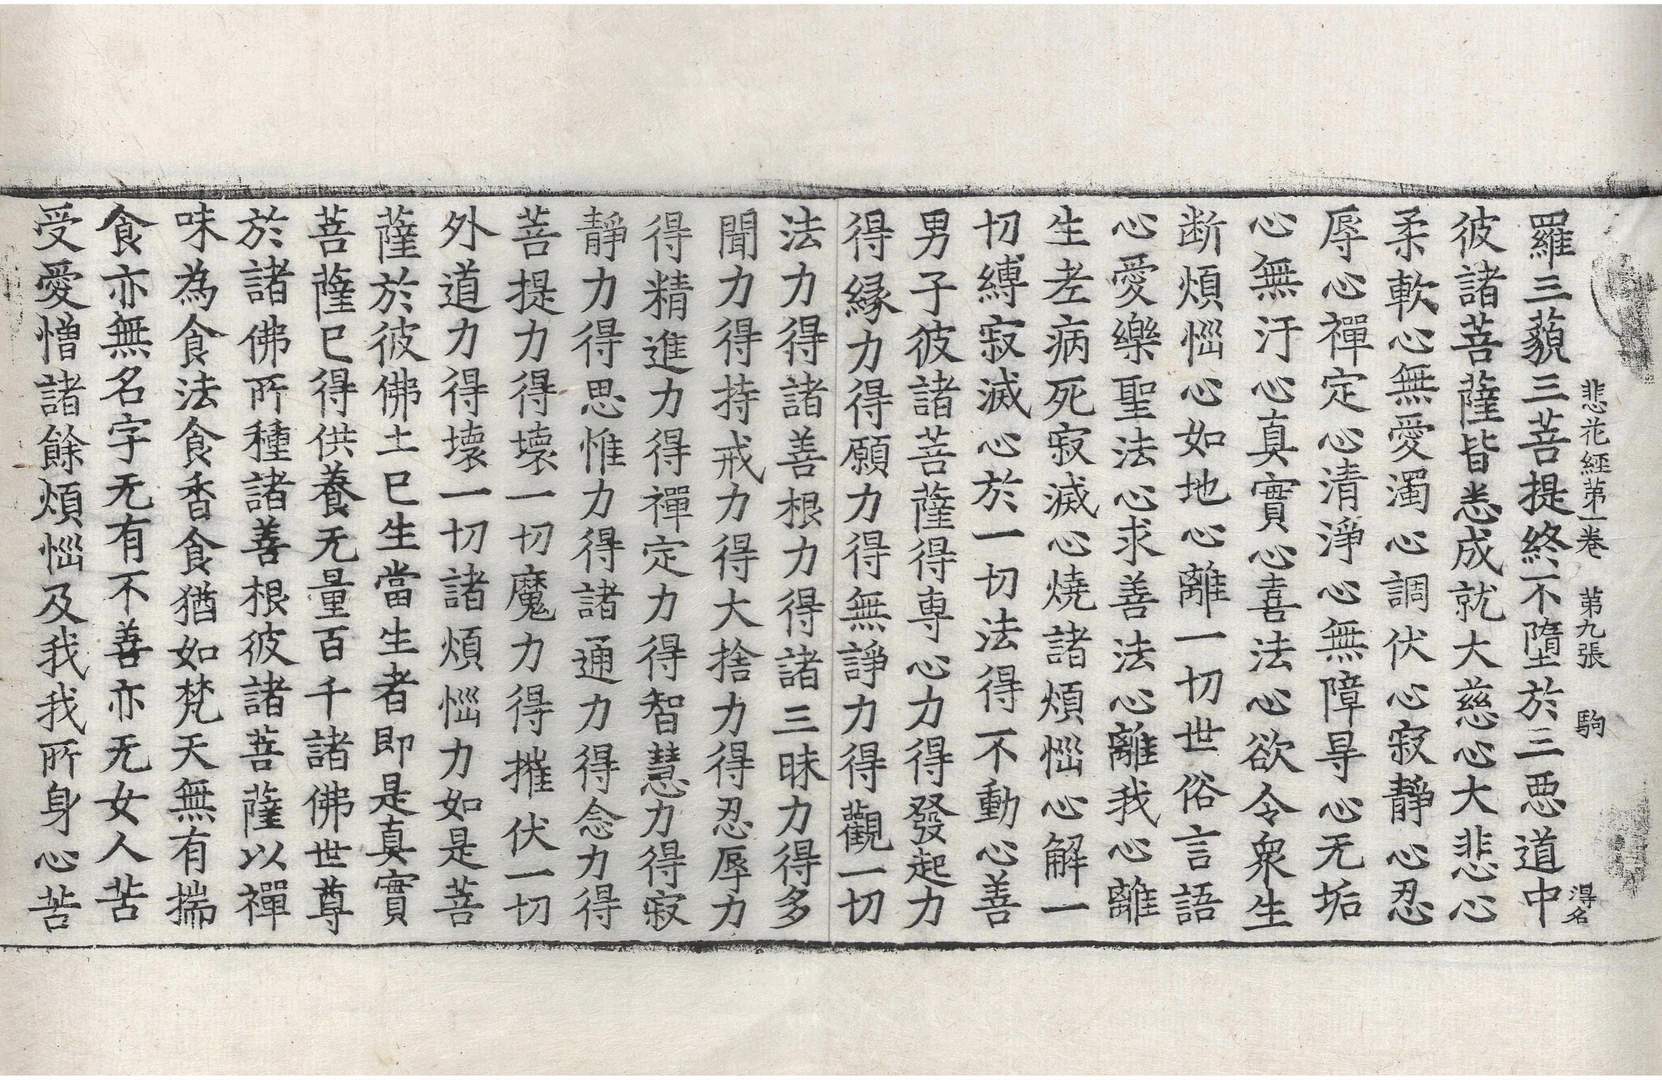 悲花經第一卷 第九張 駒 淂名
羅三藐三菩提終不墮於三悪道中
彼諸菩薩皆悉成就大慈心大悲心
柔軟心無愛濁心調伏心寂靜心忍
辱心禪定心清淨心無障㝵心无垢
心無汙心真實心喜法心欲令衆生
断煩惱心如地心離一切世俗言語
心愛樂聖法心求善法心離我心離
生老病死寂滅心燒諸煩惱心解一
切縛寂滅心於一切法得不動心善
男子彼諸菩薩得専心力得發起力
得縁力得願力得無諍力得觀一切
法力得諸善根力得諸三昧力得多
聞力得持戒力得大捨力得忍辱力
得精進力得禪定力得智慧力得寂
靜力得思惟力得諸通力得念力得
菩提力得壊一切魔力得摧伏一切
外道力得壊一切諸煩惱力如是菩
薩於彼佛土已生當生者即是真實
菩薩已得供養无量百千諸佛世尊
於諸佛所種諸善根彼諸菩薩以禪
味為食法食香食猶如梵天無有揣
食亦無名字无有不善亦无女人苦
受愛憎諸餘煩惱及我我所身心苦